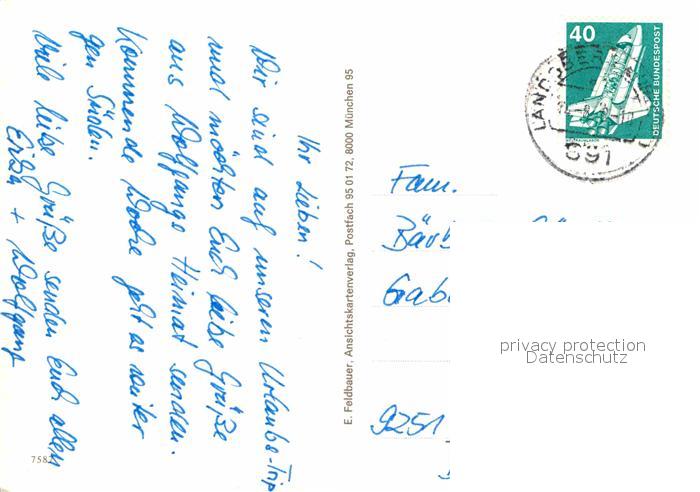 Ihr Lieben!
Wir sind auf unserem Urlaubs-Trip
und möchten Euch liebe Grüße
aus Wolfgangs Heimat senden.
Kommende Woche geht es weiter
gen Süden.
Viele liebe Grüße senden Euch allen
+ Wolfgang
7587
E. Feldbauer, Ansichtskartenverlag, Postfach 95 01 72, 8000 München 95
40
DEUTSCHE BUNDESPOST
LANDSBE
891
Fam.
Bärb
Gab
9251
privacy protection
Datenschutz